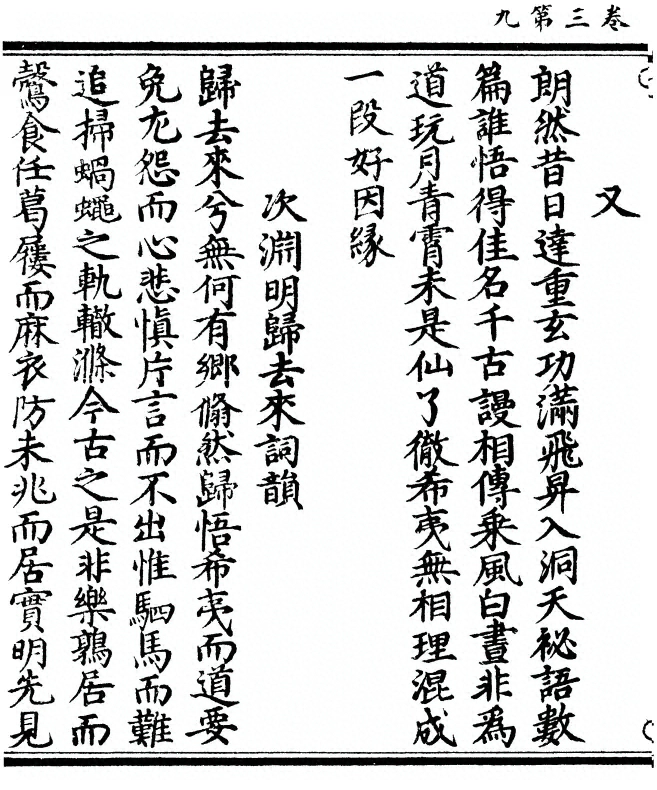 卷三第九
又
朗然昔日達重玄功滿飛昇入洞天祕語數
篇誰悟得佳名千古謾相傳乘風白晝非爲
道玩月青霄未是仙了徹希夷無相理混成
一段好因緣
次淵明歸去來詞韻
歸去來兮無何有鄉翛然歸悟希夷而道要
免尤怨而心悲愼片言而不出惟駟馬而難
追掃蝸蠅之軌轍滌今古之是非樂鶉居而
鷇食任葛屨而麻衣防未兆而居實明先見